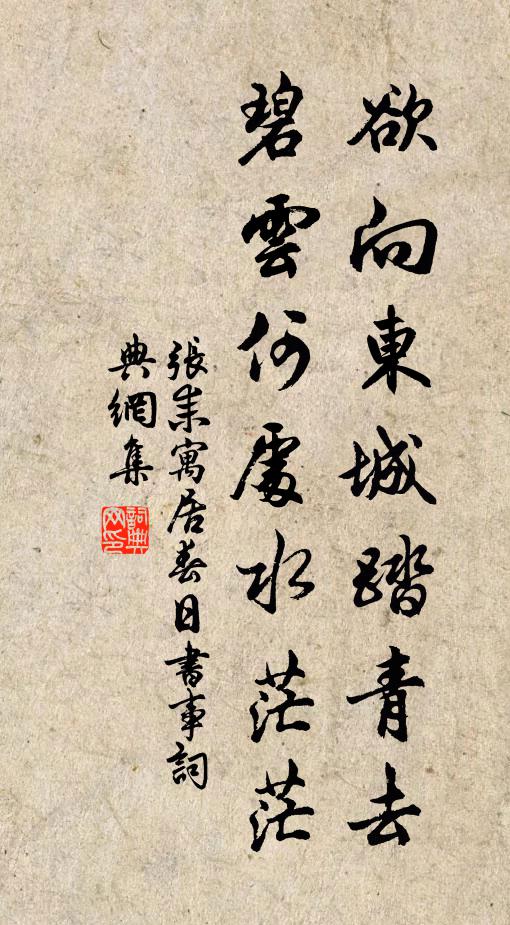 欲向東城踏青去
碧雲何處水茫茫
張耒寓居春日書事詞
典網集
詞典網印